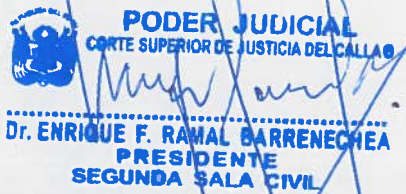 PODER JUDICIAL
CORTE SUPERIOR DE JUSTICIA DEL CALLAO
Dr. ENRIQUE F. RAMAL BARRENECHEA
PRESIDENTE
SEGUNDA SALA CIVIL